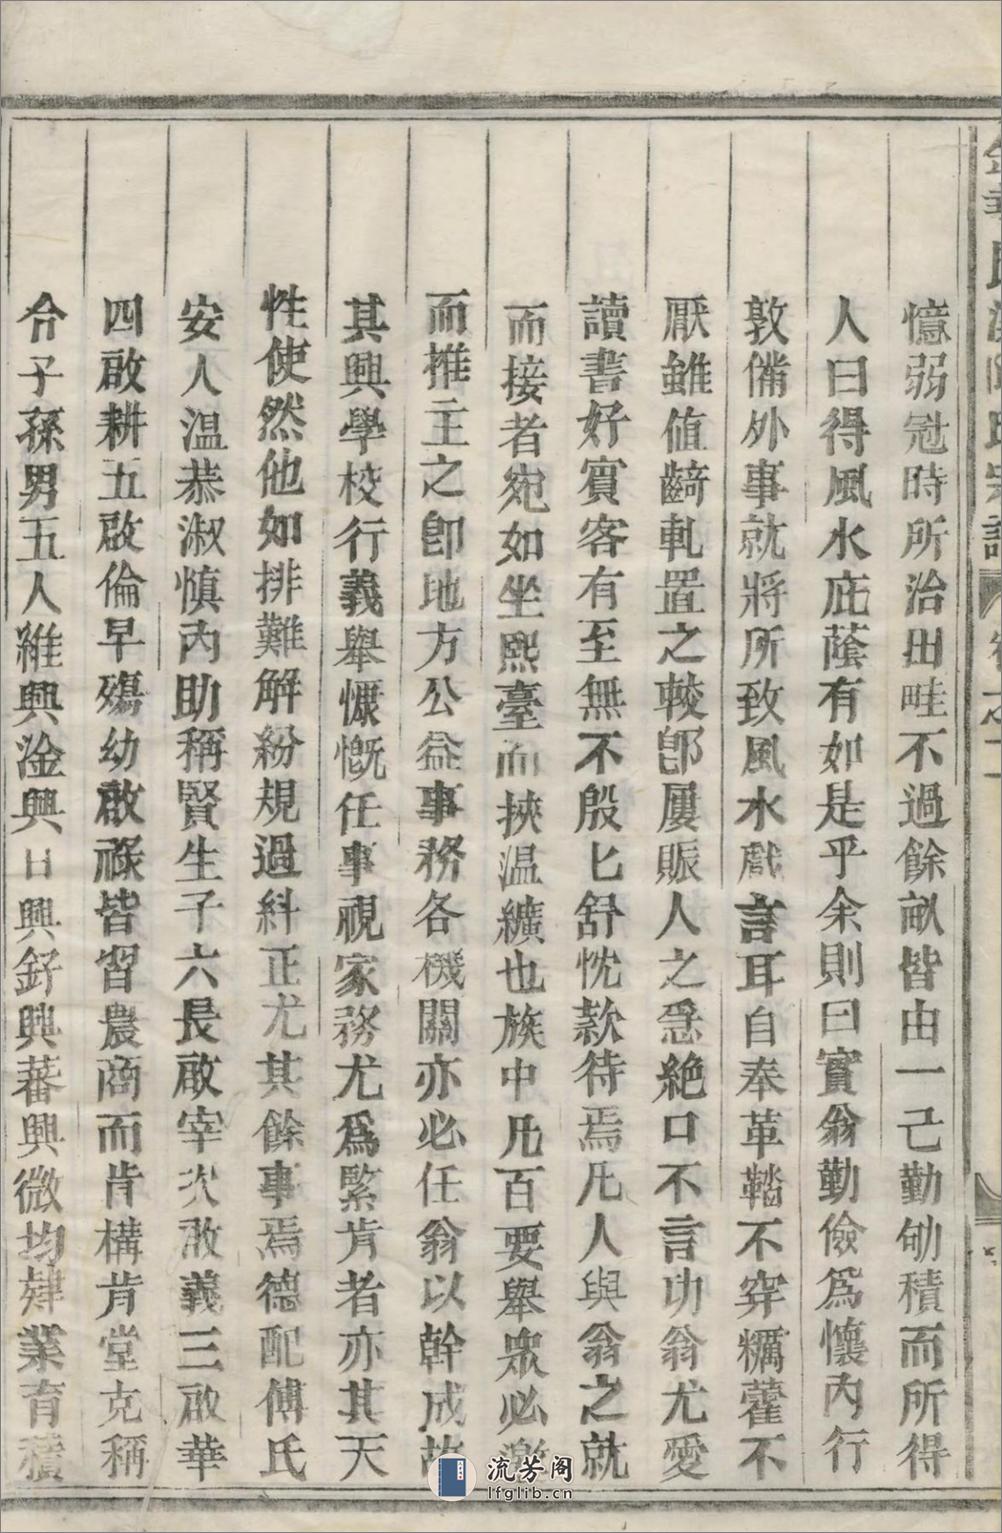 憶弱冠時所治田畦不過餘畝皆由一己勤劬積而所得
人曰得風水庇蔭有如是乎余則曰實翁勤儉爲懷內行
敦備外事就將所致風水戲言耳自奉革鞜不穿糲藿不
厭雖値齮軋置之較卽屢賑人之急絕口不言功翁尤愛
讀書好賓客有至無不殷匕舒忱款待焉凡人與翁之就
而接者宛如坐熙臺而挾温纊也族中凡百要舉眾必邀
而推主之卽地方公益事務各機關亦必任翁以幹成故
其興學校行義舉慷慨任事視家務尤爲緊肯者亦其天
性使然他如排難解紛規過糾正尤其餘事焉德配傅氏
安人温恭淑慎內助稱賢生子六長啟宰次啟義三啟華
四啟耕五啟倫早殤幼啟祿皆習農商而肯構肯堂克稱
合子孫男五人維興淦興日興釪興蕃興微均肄業育積
流芳阁
lfglib.cn